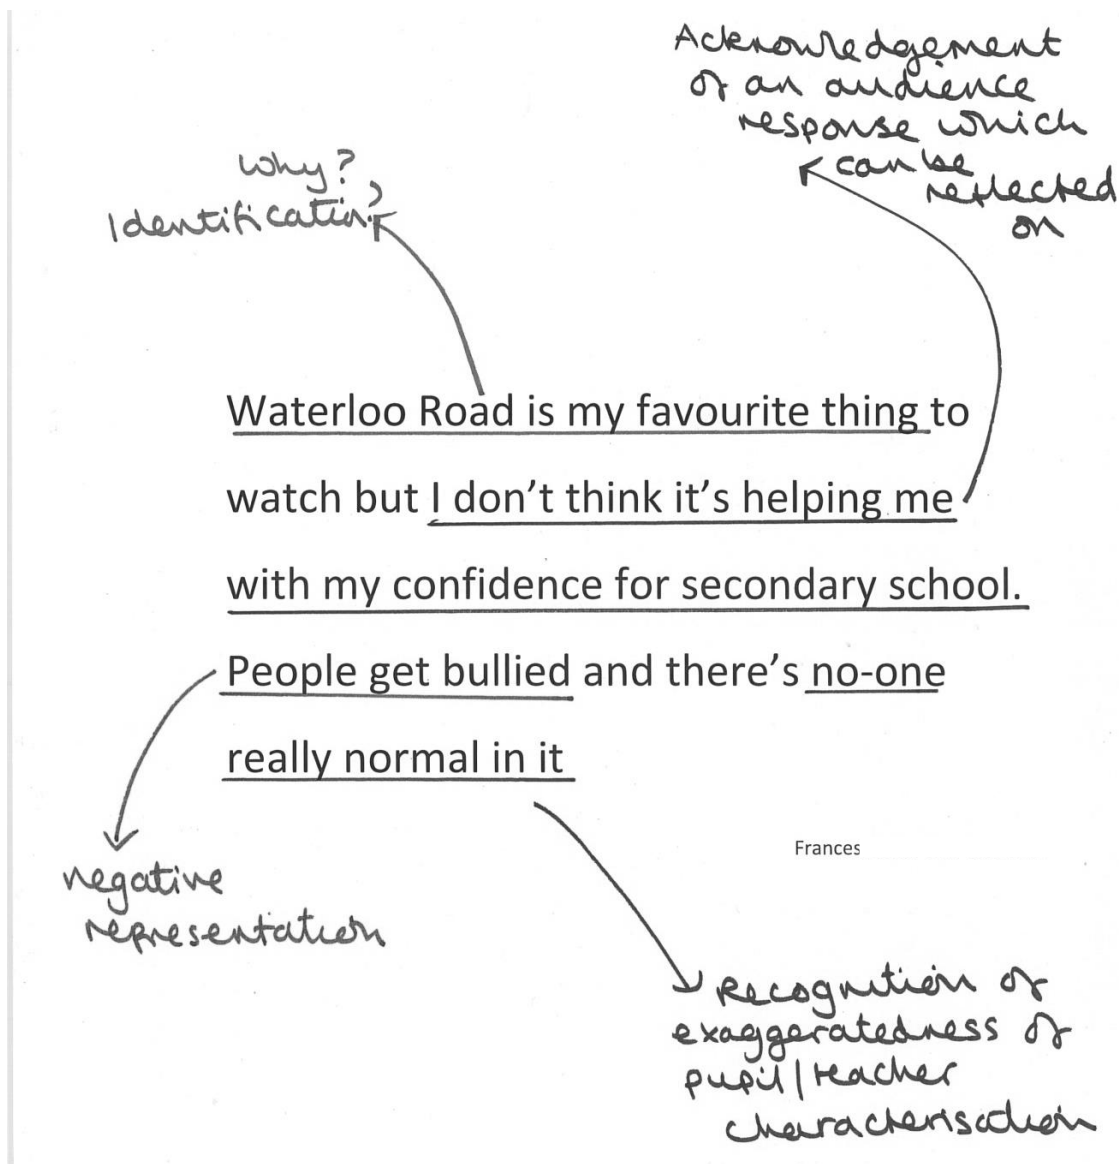 Acknowledgement
of an audience
response which
can be
reflected
on
Why?
Identification?
Waterloo Road is my favourite thing to
watch but I don’t think it’s helping me
with my confidence for secondary school.
People get bullied and there’s no-one
really normal in it
Frances
negative
representation
Recognition of
exaggeratedness of
pupil/teacher
characterisation